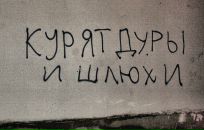 КУРЯТ ДУРЫ
И ШЛЮХИ